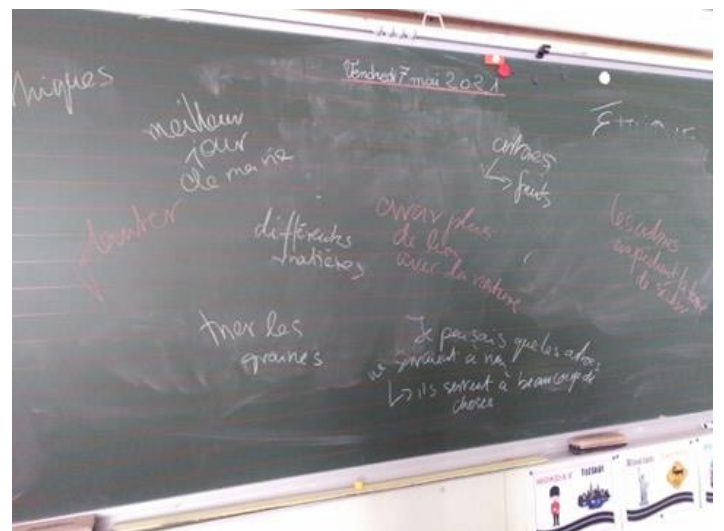 Vendredi 7 mai 2021
niques
meilleur
jour
de ma vie
arbres
↳ fruits
planter
différentes
matières
avoir plus
de lien
avec la nature
les arbres
empêchent la terre
de sécher
trier les
graines
Je pensais que les arbres
ne servaient à rien
↳ ils servent à beaucoup de
choses
TUESDAY